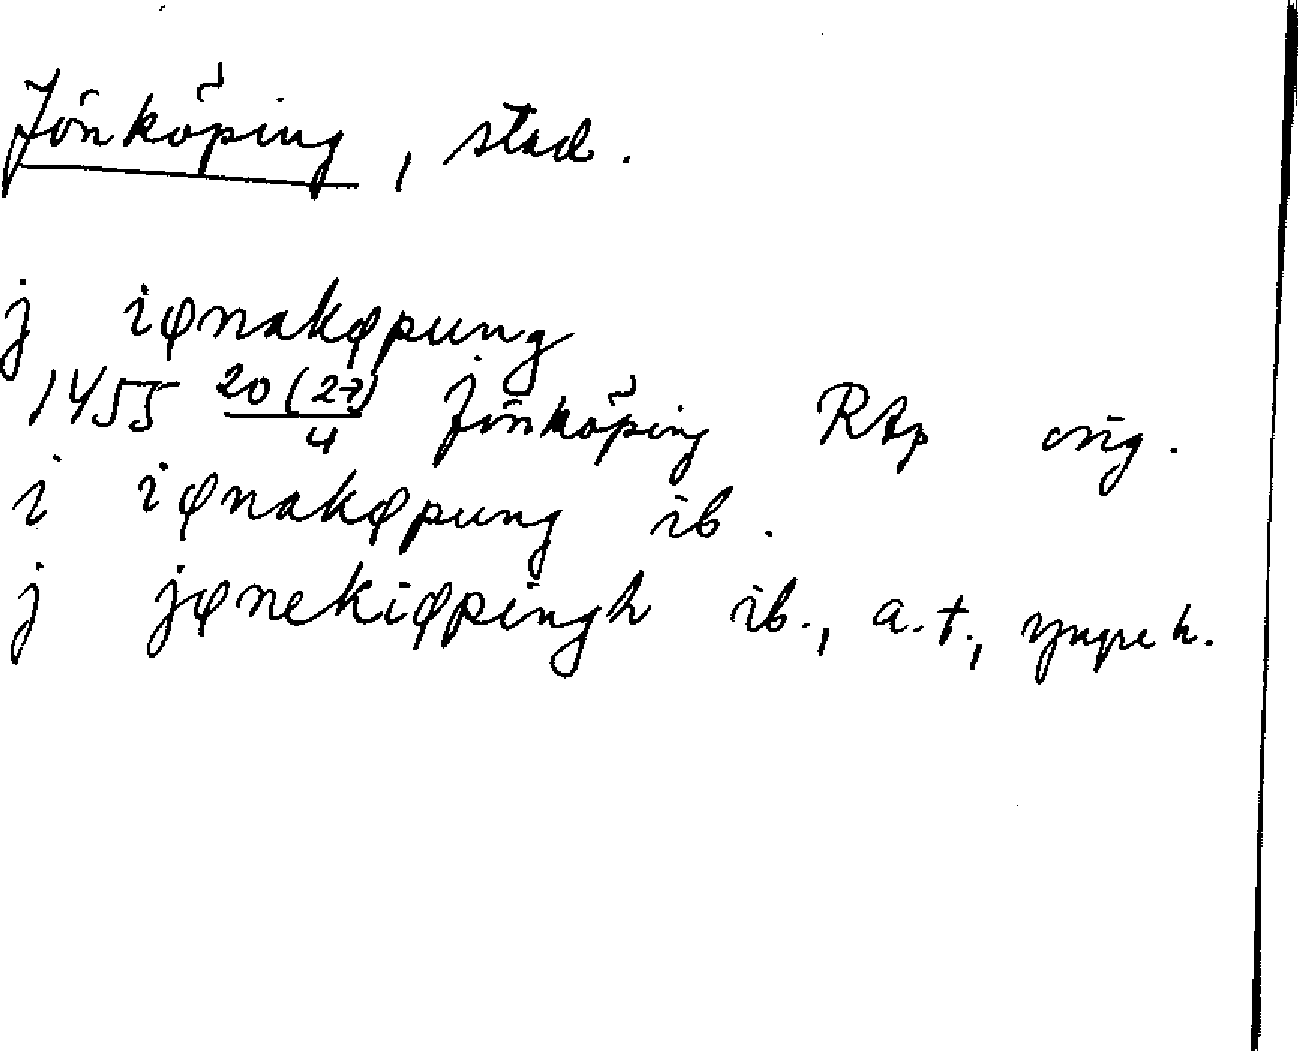 Jönköping, stad.
j iønakøpung
1455 20 (27)/4 Jönköping RAp orig.
i iønakøpung ib.
j jønekiøpingh ib., a.t., yngre h.